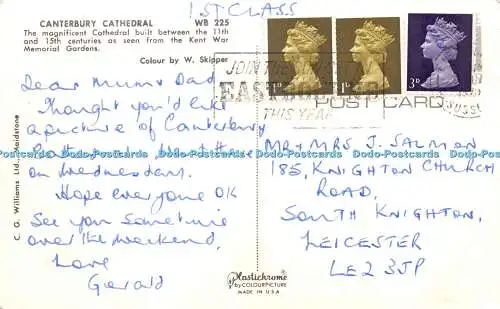 1ST CLASS
CANTERBURY CATHEDRAL WB 225
The magnificent Cathedral built between the 11th
and 15th centuries as seen from the Kent War
Memorial Gardens.
Colour by W. Skipper
Dear Mum & Dad
Thought you'd like
a picture of Canterbury
on Wednesday.
Hope everyone OK
See you sometime
over the weekend.
Love
Gerald
C. G. Williams Ltd., Maidstone
Plastichrome
by COLOURPICTURE
MADE IN U.S.A
1D
1D
3D
JOIN THE
EASTBOURNE
THIS YEAR
POST CARD
MR & MRS J. SALMON
185, KNIGHTON CHURCH
ROAD,
SOUTH KNIGHTON,
LEICESTER
LE2 3JP
Dodo-Postcards Dodo-Postcards Dodo-Postcards Dodo-Postcards Dodo-Postcards Dodo-Postcards